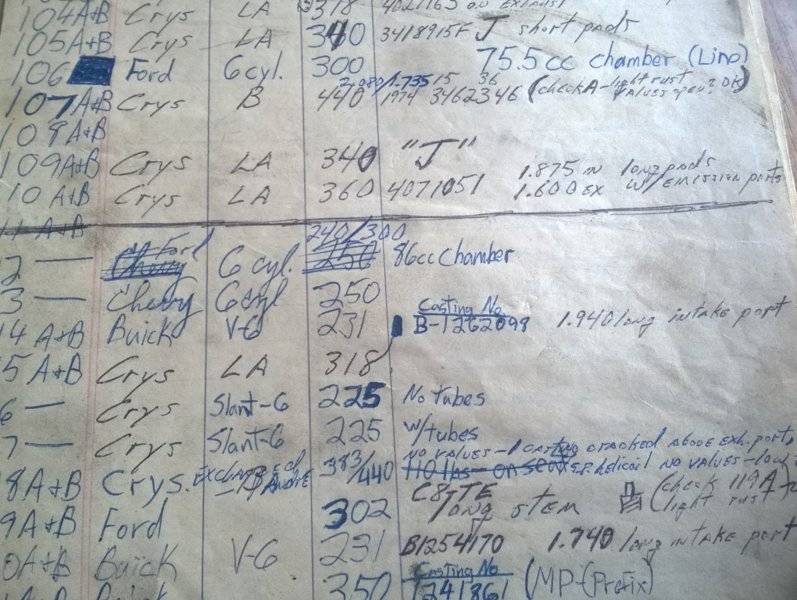 104A+B Crys LA 318 4027163
105A+B Crys LA 340 3418915F J short pads
106 Ford 6cyl. 300 75.5cc chamber (Lino)
107A+B Crys B 440 1974 3462346 (check A-light rust
108A+B
109A+B Crys LA 340 "J" 1.875 IN long pads
10 A+B Crys LA 360 4071051 1.600 EX W/EMISSION ports
11 A+B
2 — Ford 6cyl. 240/300 86cc Chamber
3 — Chevy 6cyl 250
14 A+B Buick V-6 231 Casting No. B-1262098 1.940 long intake port
5 A+B Crys LA 318
6 — Crys Slant-6 225 No tubes
7 — Crys Slant-6 225 w/tubes
NO VALVES-1 CASTING CRACKED ABOVE EXH. ports
8A+B Crys. 383/440 NO VALVES
9A+B Ford 302 long stem (check 119A
light rust
0A+B Buick V-6 231 B1254170 1.740 long intake port
350 Casting No. 1241861 (MP-(Prefix)